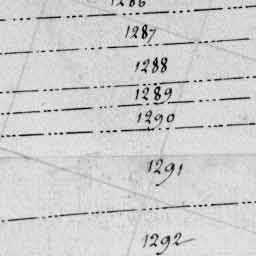 1286
1287
1288
1289
1290
1291
1292